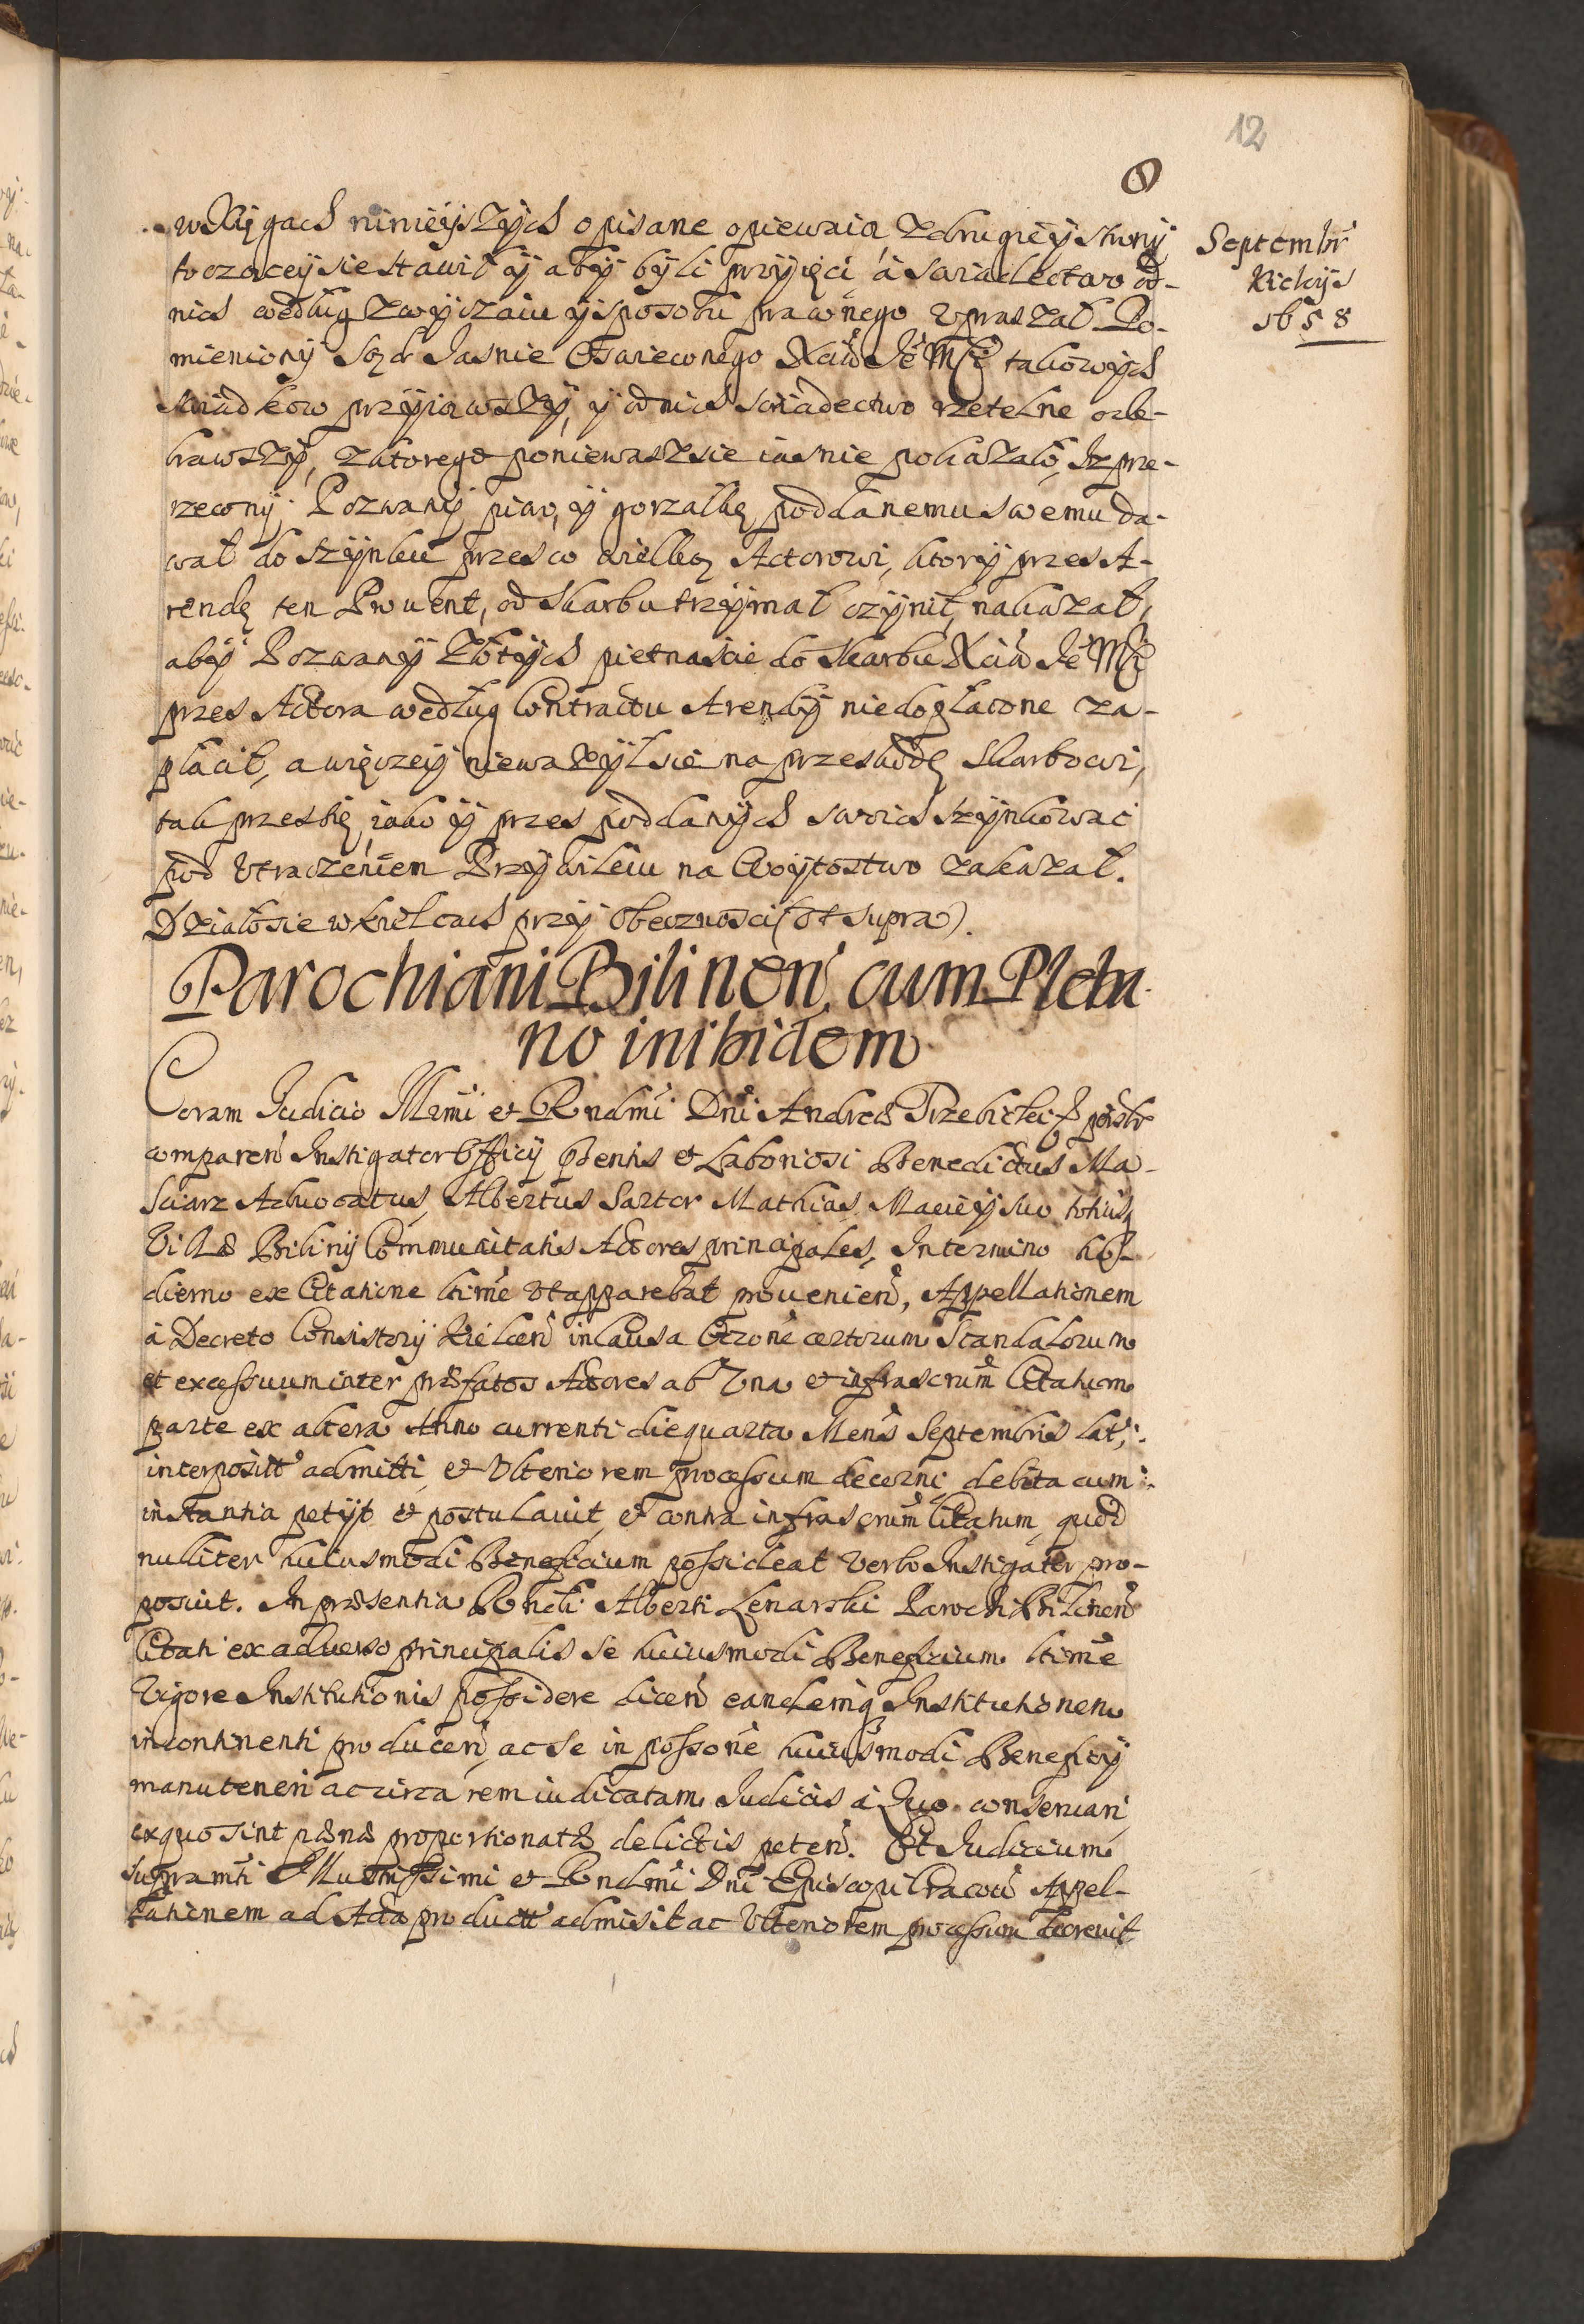 12
8
w Xięgach ninieyszych opisane opiewaią, z drugiey strony
toczącey sie stawił y aby byli przyięci, á swiadectwo od-
nich według zwyczaiu y sposobu prawnego vpraszał. Po-
mieniony Sąd Jasnie Oswieconego Xcia Je Mci takowych
swiadkow przyiąwszy, y od nich swiadectwo rzetelne ode-
brawszy, z ktorego poniewasz sie iasnie pokazało, Iz prze-
rzeczony Pozwany piwo, y gorzałkę poddanemu swemu da-
wał do szynku przes co wielką Actorowi, ktory przes A-
rendę ten Prouent, od Skarbu trzymał czynił, nakazał,
aby Pozwany Złotych pietnascie do Skarbu Xcia Je Mci
przes Actora według Contractu Arendy niedopłacone za-
płacił, a więczey niewazył sie na przeskodę Skarbowi,
tak przes się, iako y przes poddanych swoich szynkowac
pod vtraczeniem Przywileiu na Woytostwo zakazał.
Działo sie w Kielcach przy obecznosci (vt supra).
Septembr
Kielcys
1658
Parochiani Bilinen. cum Pleba-
no inibidem
Coram Judicio Illmi et Rndmi Dni Andreæ Trzebicki
comparen Instigator Officij et Laboriosi Benedictus Ma-
sciarz Aduocatus, Albertus Sartor Mathias Macieysko totiusq
Villæ Biliny Communitatis Actores principales, In termino ho-
dierno ex Citatione ltime vt apparebat prouenien, Appellationem
à Decreto Consistorij Kielcen in Causa certorum Scandalorum
et excessuum inter præfatos Actores ab Vna et infrascrm Citatum
parte ex altera Anno currenti die quarta Mens Septembris lat,
interposit admitti, et Vlteriorem processum decerni, debita cum
instantia petijt et postulauit, et contra infrascrm Citatum, quod
nulliter huiusmodi Beneficium possideat verbo Instigator pro-
posuit. In præsentia Rndi Alberti Lenarski Parochi Bilinen
Citati ex aduerso principalis se huiusmodi Beneficium ltime
Vigore Institutionis possidere dicen eandemq Institutionem
incontinenti producen, ac se in possone huiusmodi Beneficij
manuteneri ac circa rem iudicatam Judicis à Quo conseruari,
ex quo sint pænæ proportionatæ delictis peten. Et Judicium
supramti Illustrissimi et Rndmi Dni Episcopi Cracou Appel-
lationem ad Acta product admisit ac Vlteriorem processum decreuit